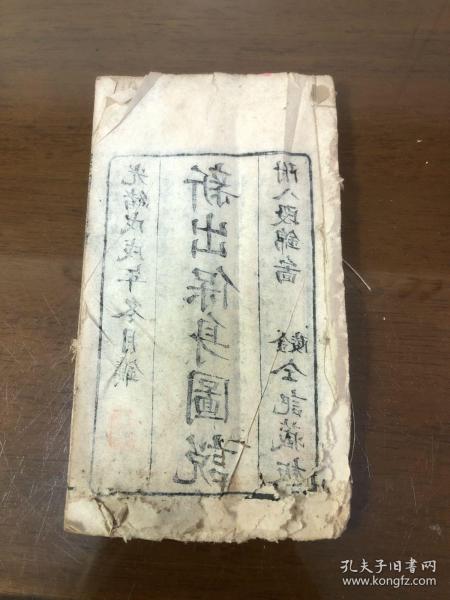 光緒戊戌年冬月鐫
新出保身圖說
附八段錦圖
全記藏板
孔夫子旧书网
www.kongfz.com